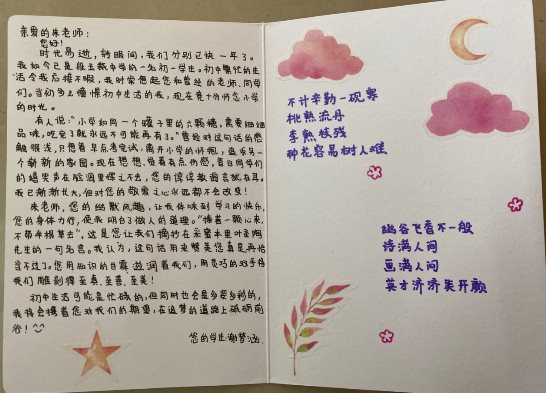 亲爱的朱老师:
您好!
时光易逝,转眼间,我们分别已快一年了。
我如今已是段玉裁中学的一名初一学生。初中繁忙的生
活令我应接不暇,我时常想起您和曾经的老师、同学
们。当初多么憧憬初中生活的我,现在竟十分怀念小学
的时光。
有人说:“小学如同一个罐子里的六颗糖,需要细细
品味,吃完了就永远不可能再有了。”曾经对这句话的感
触很浅,只想着早点考完试,离开小学的怀抱,追寻另一
个崭新的家园。现在想想,觉着有点伤感,昔日同学们
的嬉笑声在脑海里挥之不去,您的谆谆教诲言犹在耳。
我已渐渐长大,但对您的敬爱之心永远都不会改变!
朱老师,您的幽默风趣,让我体味到学习的快乐,
您的身体力行,使我明白了做人的道理。“捧着一颗心来,
不带半根草去”,这是您让我们摘抄在采蜜本里叶圣陶
先生的一句名言。我认为,这句话用来赞美您真是再恰
当不过了。您用知识的甘露滋润着我们,用灵巧的双手将
我们雕刻得至真、至善、至美!
初中生活可能是忙碌的,但同时也会是多姿多彩的,
我将会携着您对我们的期望,在追梦的道路上砥砺前
行!
您的学生:谢梦涵
不计辛勤一砚寒
桃熟流丹
李熟枝残
种花容易树人难
幽谷飞香不一般
诗满人间
画满人间
英才济济笑开颜